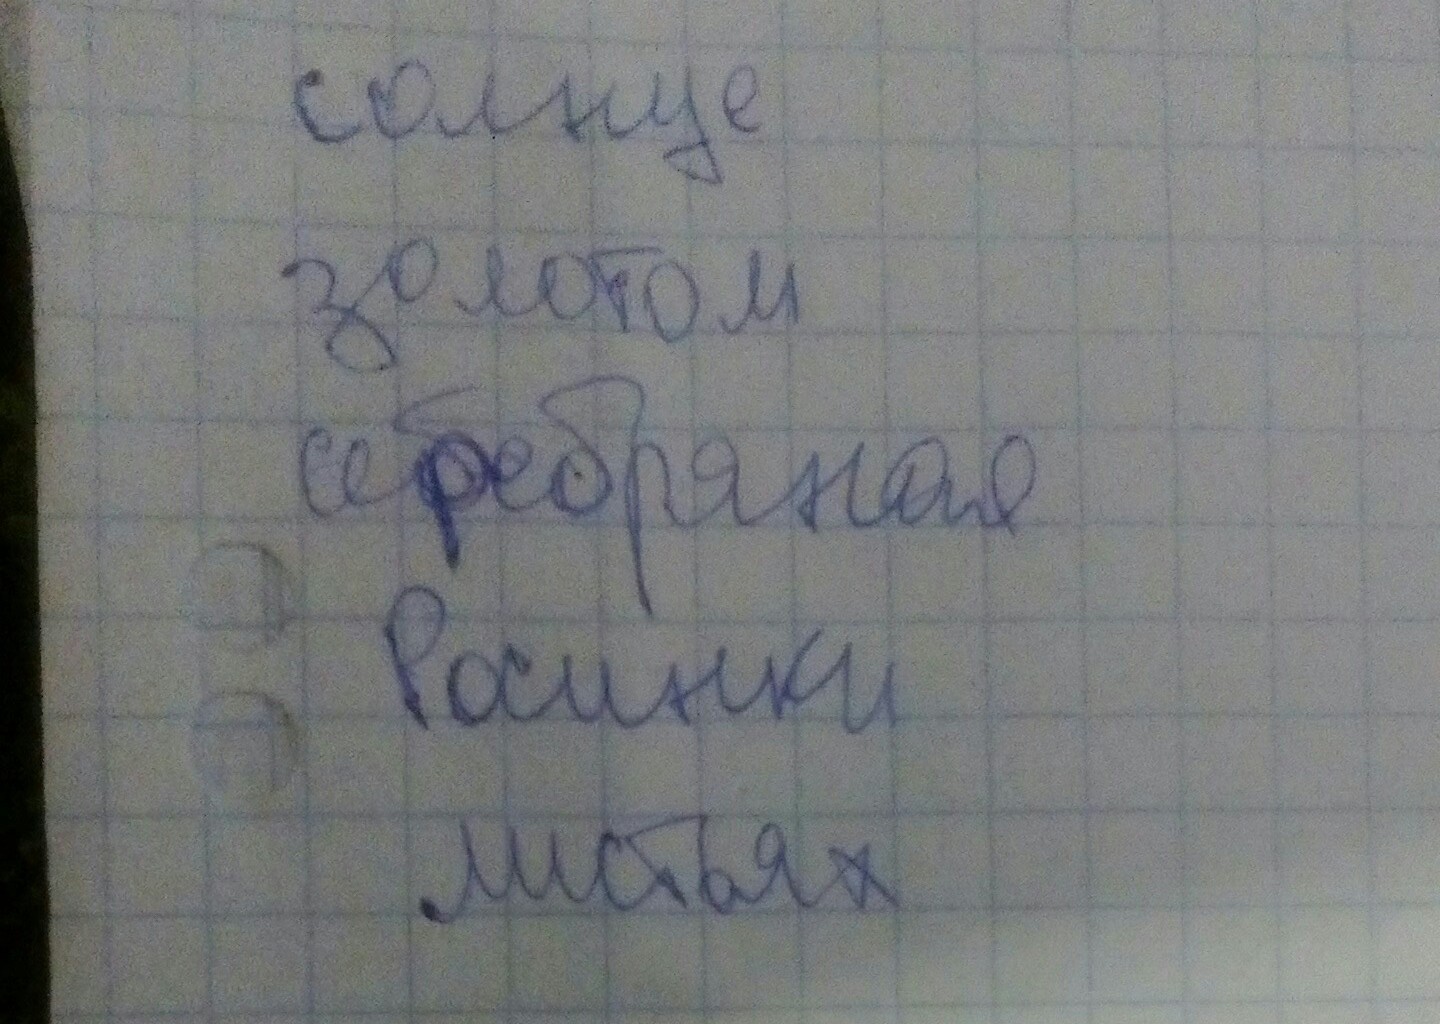 солнце
золотом
серебряная
Росинки
листьях